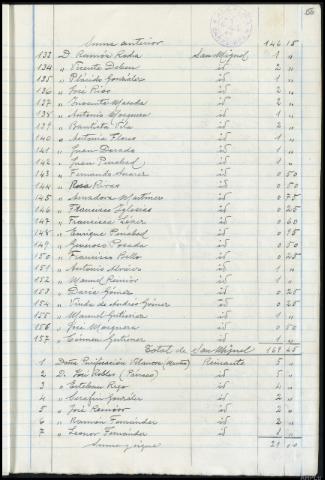 Suma anterior 146 15
133 D. Ramón Rodia San Miguel 1 "
134 " Vicente id 2 "
135 " Plácido González id 1 "
136 " José Rigo id 2 "
137 " Inocente id 2 "
138 " Antonio Mosquera id 1 "
139 " Bautista Vila id 2 "
140 " Antonio Flores id 1 "
141 " Juan Dorado id 1 "
142 " Juan Peinabad id 1 "
143 " Fernando Suarez id 0 50
144 " Rosa Rivas id 0 50
145 " Amadora Martinez id 0 75
146 " Francisco Iglesias id 0 25
147 " Francisca López id 0 60
148 " Enrique Peinabad id 0 95
149 " Generoso Posada id 0 50
150 " Francisco Bello id 0 25
151 " Antonio Alvarez id 1 "
152 " Manuel Remior id 1 "
153 " Gómez id 0 25
154 " Viuda de Andrés Gómez id 0 25
155 " Manuel Gutierrez id 1 "
156 " José Mosquera id 0 50
157 " Gutierrez id 1 "
Total de San Miguel 169 45
1 Doña Purificación Reinante 5 "
2 D. José Robles (Párroco) id 5 "
3 " Esteban Rigo id 4 "
4 " Serafín González id 2 "
5 " José Remior id 2 "
6 " Ramón Fernández id 2 "
7 " Leonor Fernández id 1 "
Suma y sigue 21 00